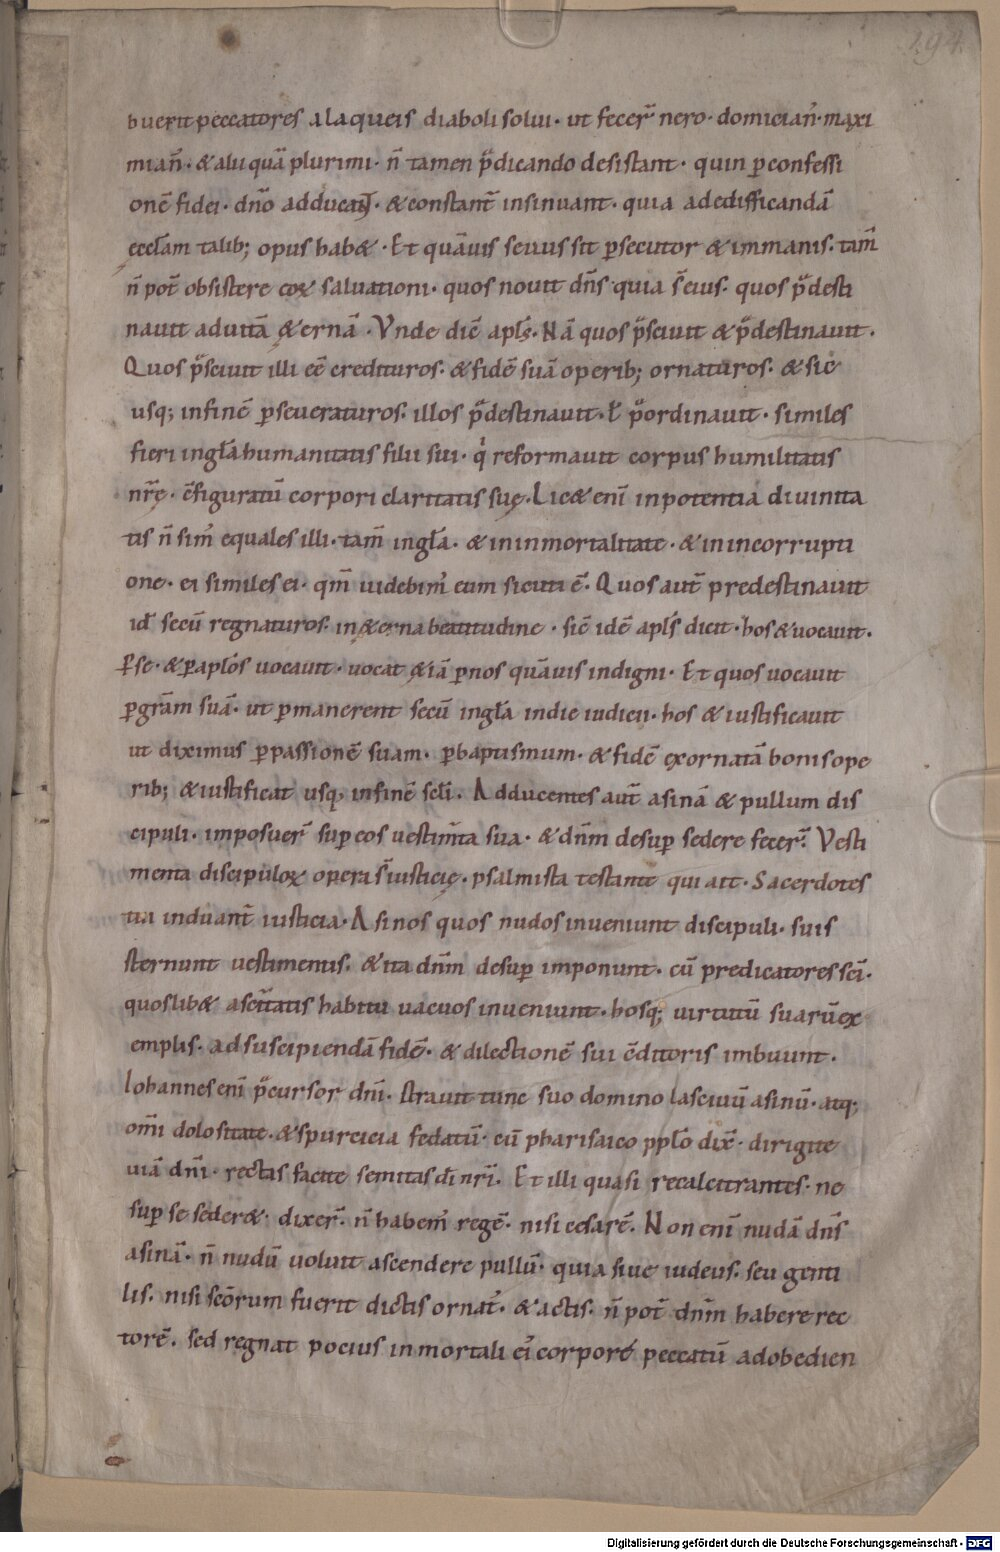 194.
buerit peccatores a laqueis diaboli solui· ut fecer̄ nero· domician᷒· maxi
mian᷒· & alii quā plurimi· n̄ tamen p̄dicando desistant· quin ꝑ confessi
onē fidei· dn̄o adducant̄· & constant̄ insinuant· quia ad edifficandā
ęccłam talib; opus hab&· Et quāuis seuus sit ꝑsecutor & immanis· tam̄
n̄ pot̄ obsistere eoꝝ saluationi· quos nouit dn̄s quia s̄ eius· quos p̄desti
nauit ad uitā ę&ernā· Vnde dic̄ apłs· Nā quos p̄sciuit & p̄destinauit·
Quos p̄sciuit illi eē credituros· & fidē suā operib; ornaturos· & sic
usq; in finē ꝑseueraturos· illos p̄destinauit· ł p̄ordinauit· similes
fieri in głā humanitatis filii sui· qͥ reformauit corpus humilitatis
nr̄ę· c̄figuratū corpori claritatis suę· Lic& enī in potentia diuinita
tis n̄ sim᷒ equales illi· tam̄ in głā· & in inmortalitate· & in incorrupti
one· ei similes ei· qm̄ uidebim᷒ eum sicuti ē· Quos aut̄ predestinauit
id̄ secū regnaturos· in ę&erna beatitudine· sic̄ idē apłs dicit· hos & uocauit·
ꝑ se· & ꝑ apłos uocauit· uocat &iā ꝑ nos quāuis indigni· Et quos uocauit
ꝑ gr̄am suā· ut ꝑmanerent secū in głā in die iudicii· hos & iustificauit
ut diximus ꝑ passionē suam· ꝑ baptismum· & fidē exornatā bonis ope
rib; & iustificat usq; in finē scłi· Adducentes aut̄ asinā & pullum dis
cipuli· imposuer̄ suꝑ eos uestim̄ta sua· & dn̄m desuꝑ sedere fecer̄· Vesti
menta discipuloꝝ opera s̄ iusticię· psalmista testante qui ait· Sacerdotes
tui induant̄ iusticia· Asinos quos nudos inueniunt discipuli· suis
sternunt uestimentis· & ita dn̄m desuꝑ imponunt· cū predicatores sc̄i·
quoslib& asc̄itatis habitu uacuos inueniunt· hosq; uirtutū suarū ex
emplis· ad suscipiendā fidē· & dilectionē sui c̄ditoris imbuunt·
Iohannes enī p̄cursor dn̄i· strauit tunc suo domino lasciuū asinū· atq;
om̄i dolositate· & spurcicia fedatū· cū pharisaico ppło dix̄· dirigite
uiā dn̄i· rectas facite semitas dī nr̄i· Et illi quasi recalcitrantes· ne
suꝑ se seder&· dixer̄· n̄ habem᷒ regē· nisi cesarē· Non enī nudā dn̄s
asinā· n̄ nudū uoluit ascendere pullū· quia siue iudeus· seu genti
lis· nisi sc̄orum fuerit dictis ornat᷒· & actis· n̄ pot̄ dn̄m habere rec
torē· sed regnat pocius in mortali ei᷒ corpore peccatū ad obedien
Digitalisierung gefördert durch die Deutsche Forschungsgemeinschaft - DFG